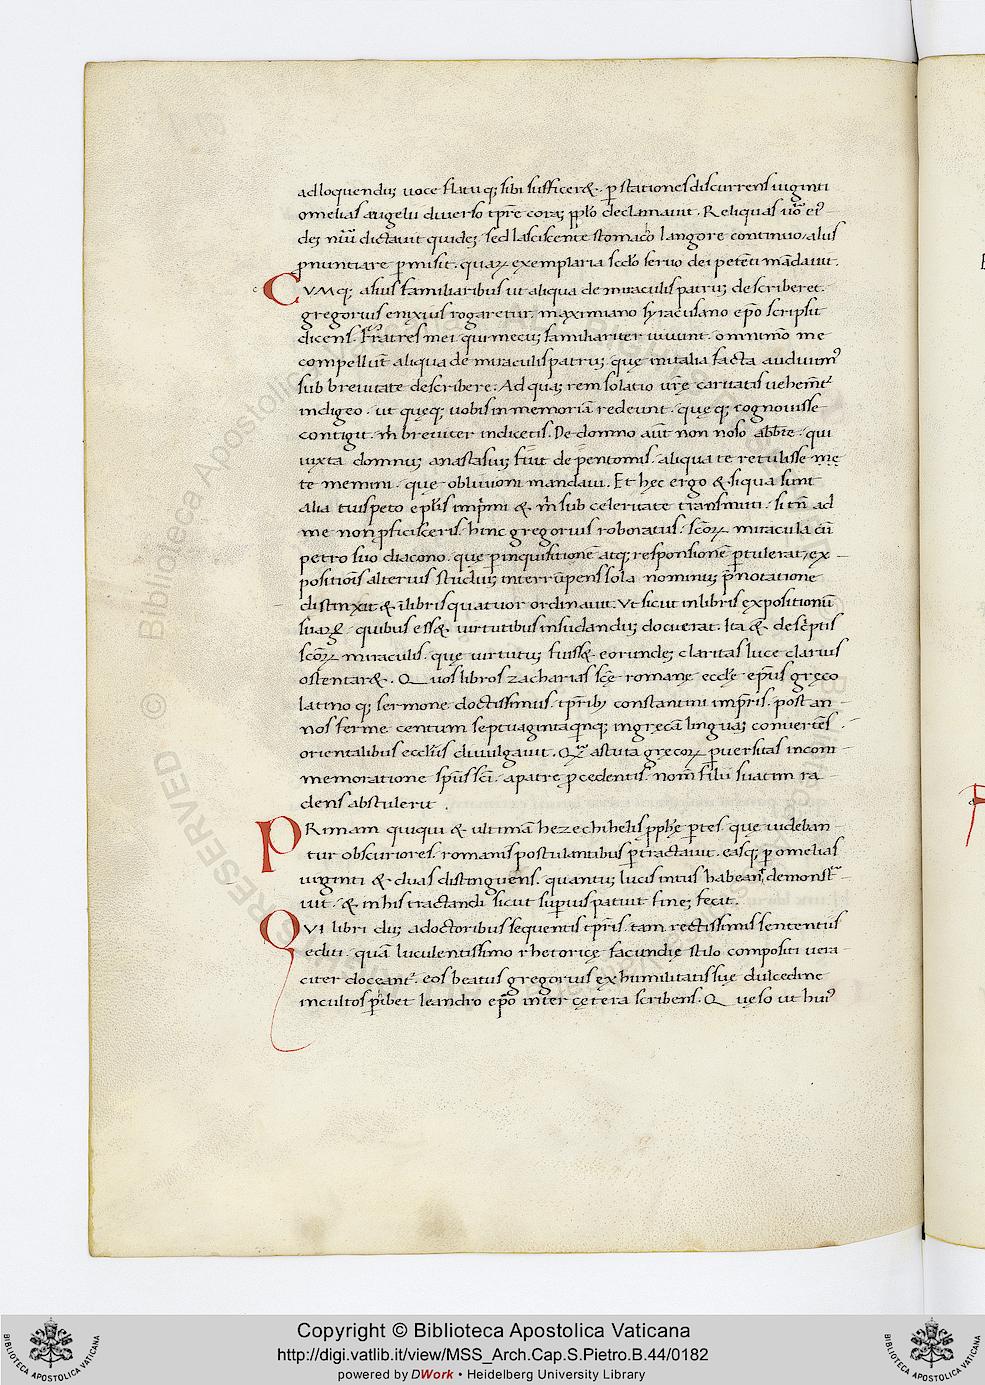 ad loquenduɜ uoce flatuqɜ sibi sufficer&. ꝑ stationes discurrens uiginti
omelias augelii diuerso tꝑre coraɜ ppl̄o declamauit. Reliquas uo᷑ eiꝰ
deɜ nūi dictauit quideɜ, sed lasciscente stomaco langore continuo, aliis
ꝓnuntiare ꝑmisit. quaꝝ exemplaria scd̄o seruo dei petēti mādauit.
CVMqɜ a suis familiaribus ut aliqua de miraculis patruɜ describeret.
gregorius enixius rogaretur. maximiano syracusano ep̄o scripsit
dicens. Fratres mei qui mecuɜ familiariter uiuunt. omnimo me
compellūt aliqua de miraculis patruɜ, quę in italia facta audiuimꝰ
sub breuitate describere. Ad quaɜ rem solatio ur̄ę caritatis uehemt̄
indigeo. ut quęqɜ uobis in memoriā redeunt. quęqɜ cognouisse
contigit. m̄ breuiter indicetis. De domno aūt non noso abb̄te. qui
iuxta domnuɜ anastasiuɜ fuit de pentomis. aliqua te retulisse mę
te memini. quę obliuioni mandaui. Et hęc ergo & siqua sunt
alia tuis peto epl̄is imprimi & m̄ sub celeritate transmitti. si tn̄ ad
me non ꝓficisceris. hinc gregorius roboratus. scōꝝ miracula cū
petro suo diacono. quę ꝑ inquisitionē atqɜ responsionē ꝓtulerat, ex
positiōis alterius studiuɜ interrūpens sola nominuɜ p̄notatione
distinxit & ī libris quatuor ordinauit. Ut sicut in libris expositionū
suaꝝ quibus ess& uirtutibus insudanduɜ docuerat. Ita & descͥptis
scōꝝ miraculis. quę uirtutuɜ fuiss& eorundeɜ claritas luce clarius
ostentar&. Quos libros zacharias scę̄ romanę eccl̄ę ep̄us gręco
latinoqɜ sermone doctissimus tꝑribɜ constantini impr̄is. post an
nos ferme centum septuaginta qͥnqɜ in gręcā linguaɜ conuertēs
orientalibus eccl̄iis diuulgauit. Qͣɜ astuta gręcoꝝ ꝑuersitas in com
memoratione sp̄us sc̄i. a patre ꝓcedentis. nomē filii suatim ra
dens abstulerit.
PRimam quiqui & ultimā hezechihelis ꝓphę ꝑtes. quę uideban
tur obscuriores. romanis postulantibus ꝑtractauit. easqɜ ꝑ omelias
uiginti & duas distinguens. quantuɜ lucis intus habeant demonstͣ
uit. & in his tractandi sicut suꝑius patuit fineɜ fecit.
QVI libri diɜ a doctoribus sequentis tꝑris. tam rectissimis sententiis
editi. quā luculentissimo rhetoricę facundię stilo compositi uera
citer doceant᷑. eos beatus gregorius ex humilitatis suę dulcedine
incultos ꝑhibet leandro ep̄o inter cętera scribens. Quęso ut huiꝰ
Copyright © Biblioteca Apostolica Vaticana
http://digi.vatlib.it/view/MSS_Arch.Cap.S.Pietro.B.44/0182
powered by DWork • Heidelberg University Library